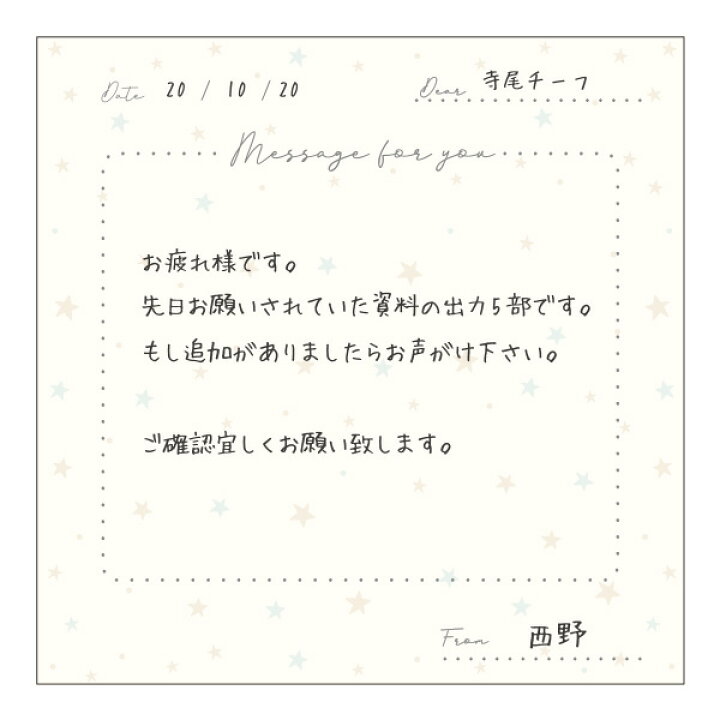 Date 20 / 10 / 20
Dear 寺尾チーフ
Message for you
お疲れ様です。
先日お願いされていた資料の出力5部です。
もし追加がありましたらお声がけ下さい。
ご確認宜しくお願い致します。
From 西野